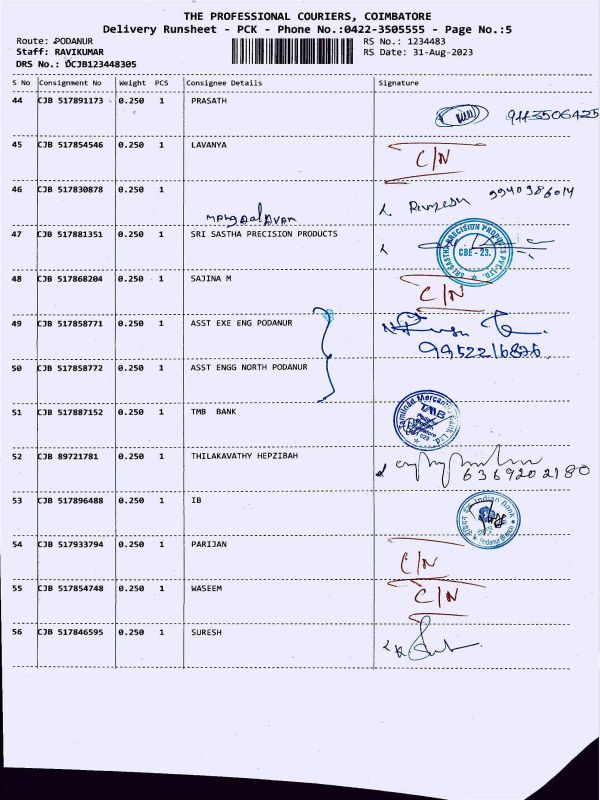 THE PROFESSIONAL COURIERS, COIMBATORE
Delivery Runsheet - PCK - Phone No.:0422-3505555 - Page No.:5
Route: PODANUR RS No.: 1234483
Staff: RAVIKUMAR RS Date: 31-Aug-2023
DRS No.: DCJB123448305
S No Consignment No Weight PCS Consignee Details Signature
44 CJB 517891173 0.250 1 PRASATH
9113506425
45 CJB 517854546 0.250 1 LAVANYA
C/N
46 CJB 517830878 0.250 1
Ramesh 9940986014
47 CJB 517881351 0.250 1 SRI SASTHA PRECISION PRODUCTS
SRI SASTHA PRECISION PRODUCTS PVT. LTD. CBE - 23.
48 CJB 517868204 0.250 1 SAJINA M
C/N
49 CJB 517858771 0.250 1 ASST EXE ENG PODANUR
9952216826
50 CJB 517858772 0.250 1 ASST ENGG NORTH PODANUR
51 CJB 517887152 0.250 1 TMB BANK
Tamilnad Mercantile Bank Ltd TMB
52 CJB 89721781 0.250 1 THILAKAVATHY HEPZIBAH
6369202180
53 CJB 517896488 0.250 1 IB
Indian Bank Podanur Branch
54 CJB 517933794 0.250 1 PARIJAN
C/N
55 CJB 517854748 0.250 1 WASEEM
C/N
56 CJB 517846595 0.250 1 SURESH